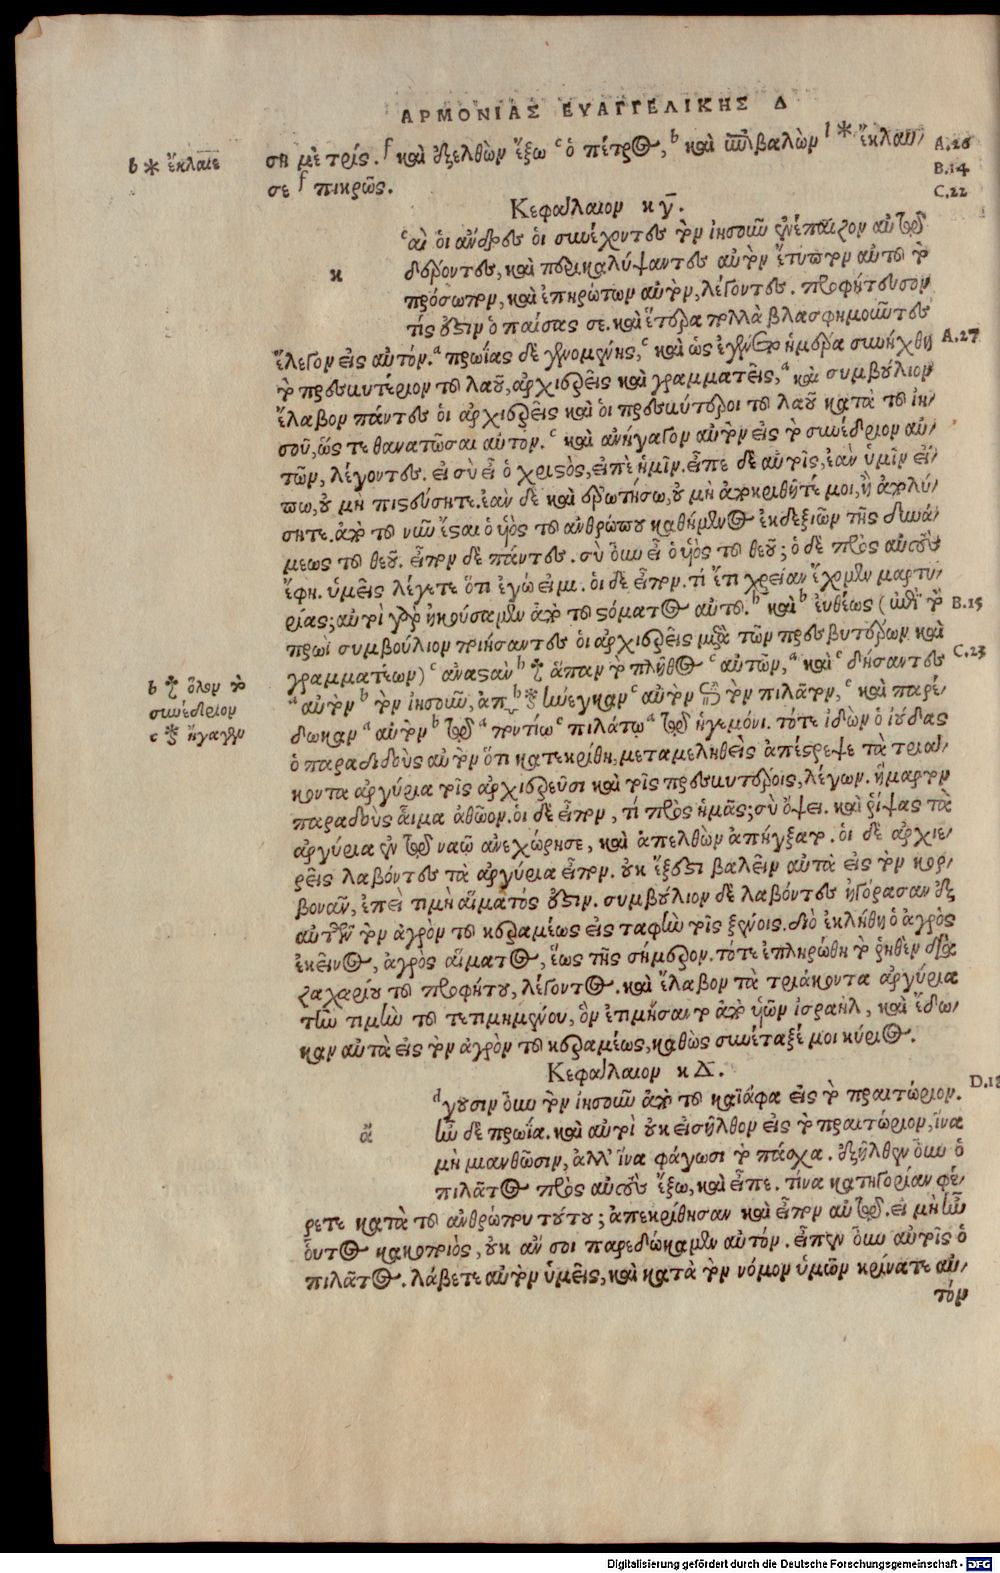 ΑΡΜΟΝΙΑΣ ΕΥΑΓΓΕΛΙΚΗΣ Δ
b * ἔκλαιε
ση με τρίς. f καὶ ἐξελθὼν ἔξω c ὁ πέτρος, b καὶ ἐπιβαλὼν l * ἔκλαυ/
A.26
σε f πικρῶς.
B.14
C.22
Κεφάλαιον κγ.
c αὶ οἱ ἄνδρες οἱ συνέχοντες τὸν ἰησοῦν ἐνέπαιζον αὐτῷ
κ
δέροντες, καὶ περικαλύψαντες αὐτὸν ἔτυπτον αὐτοῦ τὸ
πρόσωπον, καὶ ἐπηρώτων αὐτὸν, λέγοντες. προφήτευσον
τίς ἐστιν ὁ παίσας σε. καὶ ἕτερα πολλὰ βλασφημοῦντες
ἔλεγον εἰς αὐτόν. a πρωΐας δὲ γενομένης, c καὶ ὡς ἐγένετο ἡμέρα συνήχθη
A.27
τὸ πρεσβυτέριον τοῦ λαοῦ, ἀρχιερεῖς καὶ γραμματεῖς, a καὶ συμβούλιον
ἔλαβον πάντες οἱ ἀρχιερεῖς καὶ οἱ πρεσβύτεροι τοῦ λαοῦ κατὰ τοῦ ἰη/
σοῦ, ὥς τε θανατῶσαι αὐτόν. c καὶ ἀνήγαγον αὐτὸν εἰς τὸ συνέδριον αὑ/
τῶν, λέγοντες. εἰ σὺ εἶ ὁ χριστὸς, εἰπὲ ἡμῖν. εἶπε δὲ αὐτοῖς, ἐὰν ὑμῖν εἴ/
πω, οὐ μὴ πιστεύσητε. ἐὰν δὲ καὶ ἐρωτήσω, οὐ μὴ ἀποκριθῆτέ μοι, ἢ ἀπολύ/
σητε. ἀπὸ τοῦ νῦν ἔσται ὁ υἱὸς τοῦ ἀνθρώπου καθήμενος ἐκ δεξιῶν τῆς δυνά/
μεως τοῦ θεοῦ. εἶπον δὲ πάντες. σὺ οὖν εἶ ὁ υἱὸς τοῦ θεοῦ; ὁ δὲ πρὸς αὐτοὺς
ἔφη. ὑμεῖς λέγετε ὅτι ἐγώ εἰμι. οἱ δὲ εἶπον. τί ἔτι χρείαν ἔχομεν μαρτυ/
ρίας; αὐτοὶ γὰρ ἠκούσαμεν ἀπὸ τοῦ στόματος αὐτοῦ. b καὶ b ἐυθέως (ἐπὶ τὸ
B.15
πρωὶ συμβούλιον ποιήσαντες οἱ ἀρχιερεῖς μετὰ τῶν πρεσβυτέρων καὶ
γραμματέων) c ἀναστὰν b † ἅπαν τὸ πλῆθος c αὐτῶν, a καὶ c δήσαντες
C.23
b † ὅλον τὸ
συνέδριον
c * ἤγαγον
a αὐτὸν b τὸν ἰησοῦν, ἀπ b * ήνεγκαν c αὐτὸν ἐπὶ τὸν πιλᾶτον, c καὶ παρέ/
δωκαν a αὐτὸν b τῷ a ποντίῳ c πιλάτῳ a τῷ ἡγεμόνι. τότε ἰδὼν ὁ ἰούδας
ὁ παραδιδοὺς αὐτὸν ὅτι κατεκρίθη, μεταμεληθεὶς ἀπέστρεψε τὰ τριά/
κοντα ἀργύρια τοῖς ἀρχιερεῦσι καὶ τοῖς πρεσβυτέροις, λέγων. ἥμαρτον
παραδοὺς αἷμα ἀθῶον. οἱ δὲ εἶπον, τί πρὸς ἡμᾶς; σὺ ὄψει. καὶ ῥίψας τὰ
ἀργύρια ἐν τῷ ναῷ ἀνεχώρησε, καὶ ἀπελθὼν ἀπήγξατο. οἱ δὲ ἀρχιε/
ρεῖς λαβόντες τὰ ἀργύρια εἶπον. οὐκ ἔξεστι βαλεῖν αὐτὰ εἰς τὸν κορ/
βονᾶν, ἐπεὶ τιμὴ αἵματός ἐστιν. συμβούλιον δὲ λαβόντες ἠγόρασαν ἐξ
αὐτῶν τὸν ἀγρὸν τοῦ κεραμέως εἰς ταφὴν τοῖς ξένοις. διὸ ἐκλήθη ὁ ἀγρὸς
ἐκεῖνος, ἀγρὸς αἵματος, ἕως τῆς σήμερον. τότε ἐπληρώθη τὸ ῥηθὲν διὰ
ζαχαρίου τοῦ προφήτου, λέγοντος. καὶ ἔλαβον τὰ τριάκοντα ἀργύρια
τὴν τιμὴν τοῦ τετιμημένου, ὃν ἐτιμήσαντο ἀπὸ υἱῶν ἰσραὴλ, καὶ ἔδω/
καν αὐτὰ εἰς τὸν ἀγρὸν τοῦ κεραμέως, καθὼς συνέταξέ μοι κύριος.
Κεφάλαιον κδ.
d γουσιν οὖν τὸν ἰησοῦν ἀπὸ τοῦ καϊάφα εἰς τὸ πραιτώριον.
D.18
ἄ
ἦν δὲ πρωΐα. καὶ αὐτοὶ οὐκ εἰσῆλθον εἰς τὸ πραιτώριον, ἵνα
μὴ μιανθῶσιν, ἀλλ' ἵνα φάγωσι τὸ πάσχα. ἐξῆλθεν οὖν ὁ
πιλᾶτος πρὸς αὐτοὺς ἔξω, καὶ εἶπε. τίνα κατηγορίαν φέ/
ρετε κατὰ τοῦ ἀνθρώπου τούτου; ἀπεκρίθησαν καὶ εἶπον αὐτῷ. εἰ μὴ ἦν
οὗτος κακοποιὸς, οὐκ ἄν σοι παρεδώκαμεν αὐτόν. εἶπεν οὖν αὐτοῖς ὁ
πιλᾶτος. λάβετε αὐτὸν ὑμεῖς, καὶ κατὰ τὸν νόμον ὑμῶν κρίνατε αὐ/
τόν
Digitalisierung gefördert durch die Deutsche Forschungsgemeinschaft - DFG